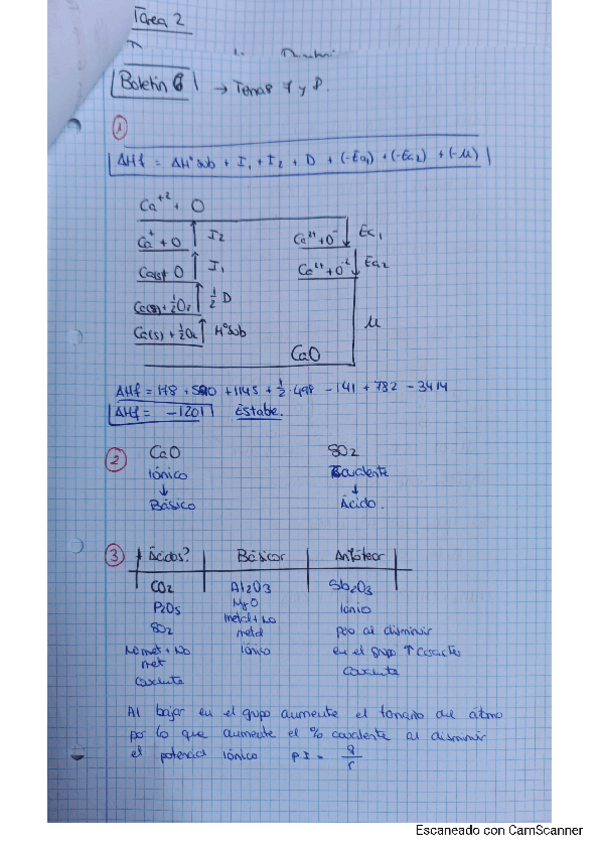 Tarea 2
Boletin 6 → Temas 7 y 8.
1
ΔHf = ΔH°sub + I₁ + I₂ + D + (-Ea₁) + (-Ea₂) + (-U)
Ca⁺² + O
Ca⁺ + O ↑ I₂ Ca²⁺ + O⁻ ↓ Ea₁
↑ I₁ Ca²⁺ + O⁻² ↓ Ea₂
Ca(g) + ½O₂ ↑ ½ D
Ca(s) + ½O₂ ↑ H°sub
U
CaO
ΔHf = 178 + 590 + 1145 + ½·498 - 141 + 782 - 3414
ΔHf = -1201 Estabe.
2 CaO SO₂
Iónico Covalente
↓ ↓
Básico Ácido.
3 Ácidos? Básicos Anfóteros
CO₂ Al₂O₃ Sb₂O₃
P₂O₅ MgO Iónico
SO₂ metal + No metal pero al disminuir
No met + No met Iónico en el grupo ↑ carácter
Covalente covalente
Al bajar en el grupo aumenta el tamaño del átmo
por lo que aumenta el % covalente al disminuir
el potencial iónico PI = q/r
Escaneado con CamScanner